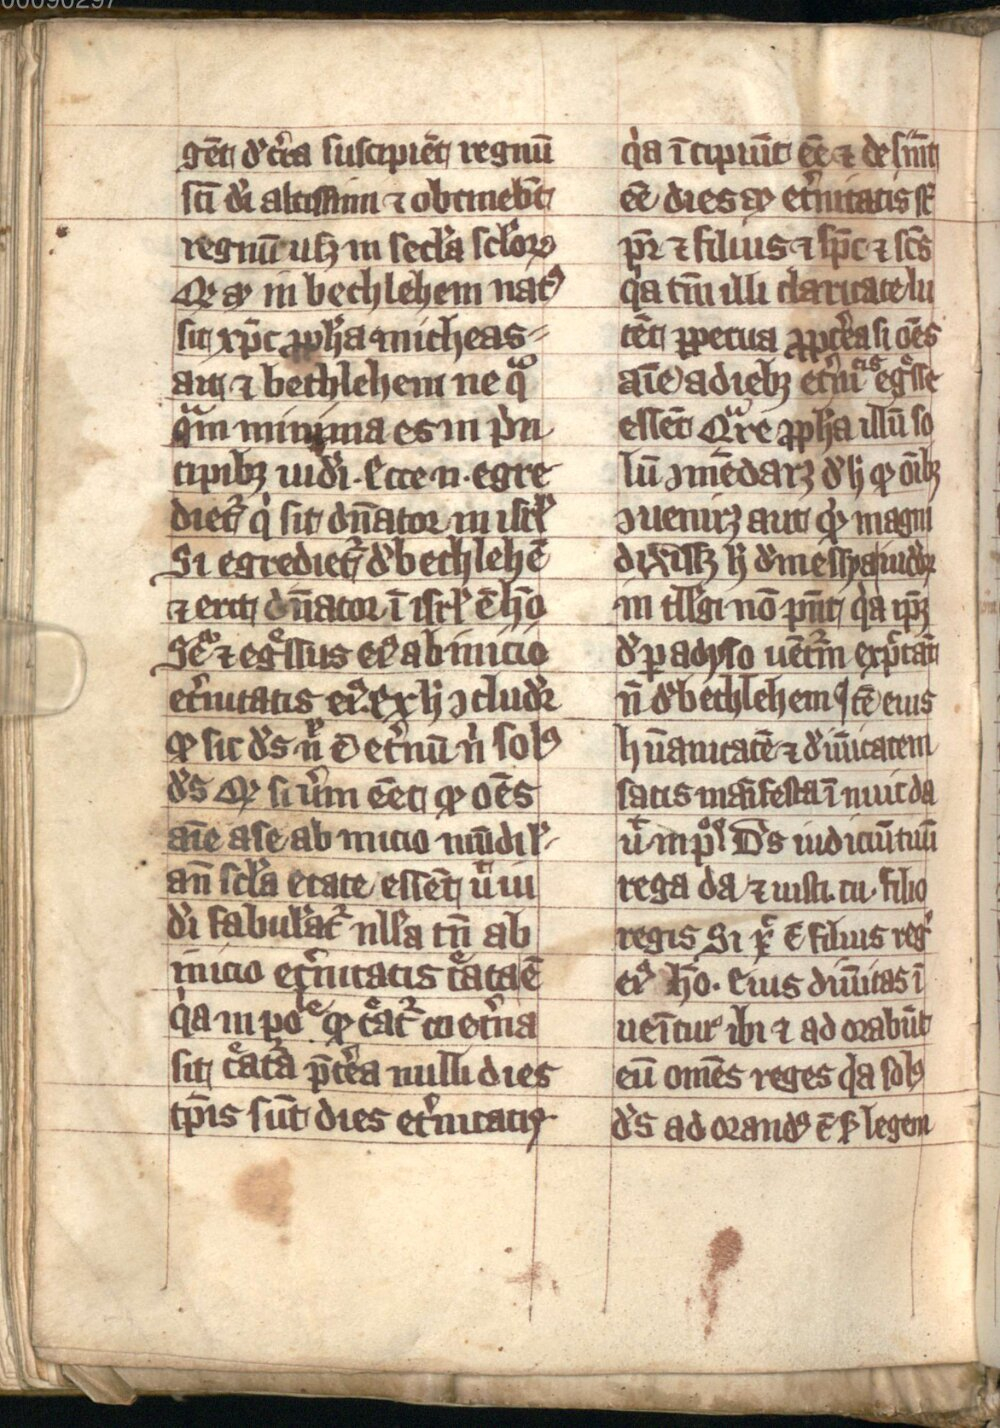 00090297
gēt d' t'ra suscipiēt regnū
sc̄i di altissimi ⁊ obtinebūt
regnū usq; in sec'la sc'loꝝ
Qd aūt in bethlehem nat9
sit xp̄c ꝓph'a micheas
ait ⁊ bethlehem ne qͣ
qͣm minima es in p'n
cipib; iudi. Ecce n. egre
diet̃ q' sit dn̄ator in isrl'
Si egrediet̃ d' bethlehē
⁊ erit dn̄ator ī isrl' ē h̄o
⁊ eg̊ssus ei' ab inicio
et'nitatis ex h' ↄclud'r
ꝙ sic d's n̄ ē et'nū n̄ sol9
d's Qd si v'm eēt ꝙ oēs
aīe a se ab inicio mūdi
an̄ sc'la create essēt ut iu
d'i fabulāt̃ nll'a tn̄ ab
inicio et'nitatis c̊ata ē
q'a inpole ꝙ c̊at̃ coet'na
sit c̊at'a p̄t'ea nulli dies
tp̄is sūt dies et'nitatis
q'a īcipiūt eē ⁊ desinūt
eē dies aūt et'nitatis st̄
pr̄ ⁊ filius ⁊ sp̄c ⁊ sc̄s
q'a tm̄ illi claritate lu
cēt ꝑpetua ꝓpt'ea si oēs
aīe a dieb; et'nitatis eg̊sse
essēt Qͣre ꝓph'a illū so
lū ↄmēdar; d' h' ꝙ oīb;
ↄuenir; aut qd magni
dixiss; h' d' messya iud'oꝝ
intll'gi nō pn̄t q'a ip̄;
d' padyso uēt'm expctāt
n̄ d' bethlehem Itē eius
hūanitatē ⁊ diūitatem
satis māifesta ī nuit da
ut in ps D's iudiciū tuū
regi da ⁊ iusti. tu. filio
regis Si xp̄c ē filius reg'
h̄o. Eius diūitas ī
uenitur ibi ⁊ adorabūt
eū omēs reges q'a sol9
d's adorand9 ē ẜ legem